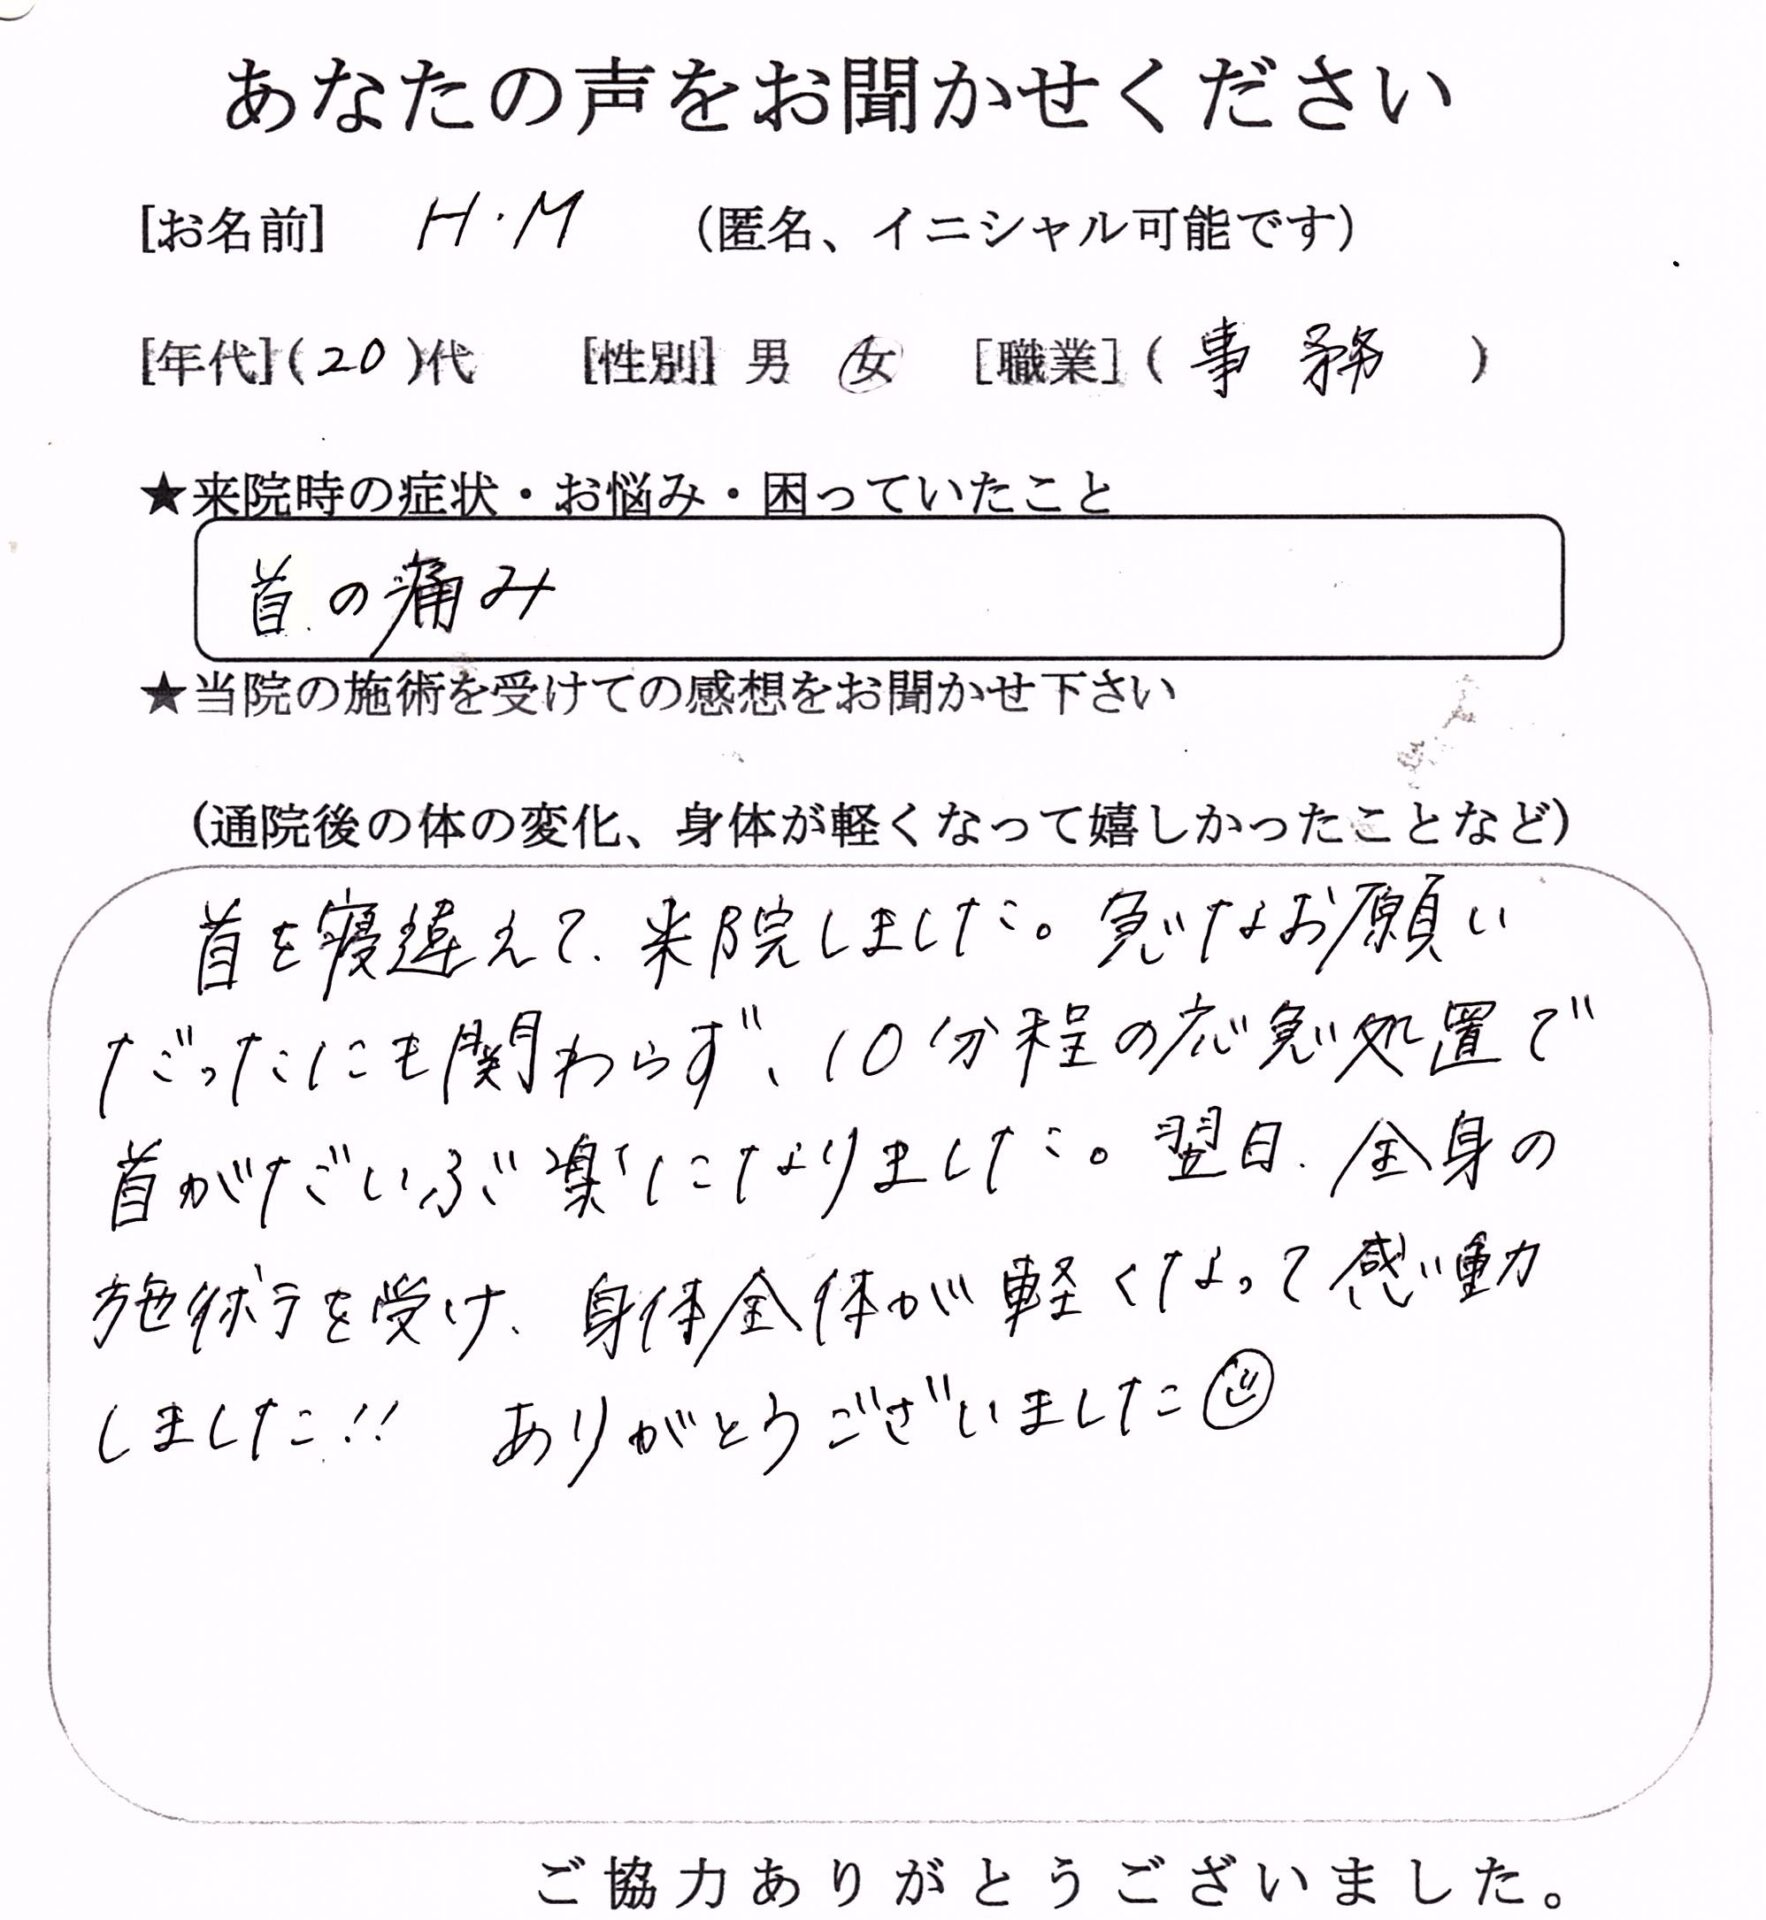 あなたの声をお聞かせください
[お名前] H・M (匿名、イニシャル可能です)
[年代](20)代 [性別] 男 女 [職業](事務)
★来院時の症状・お悩み・困っていたこと
首の痛み
★当院の施術を受けての感想をお聞かせ下さい
(通院後の体の変化、身体が軽くなって嬉しかったことなど)
首を寝違えて、来院しました。急なお願い
だったにも関わらず、10分程の応急処置で
首がだいぶ楽になりました。翌日、全身の
施術を受け、身体全体が軽くなって感動
しました!! ありがとうございました
ご協力ありがとうございました。